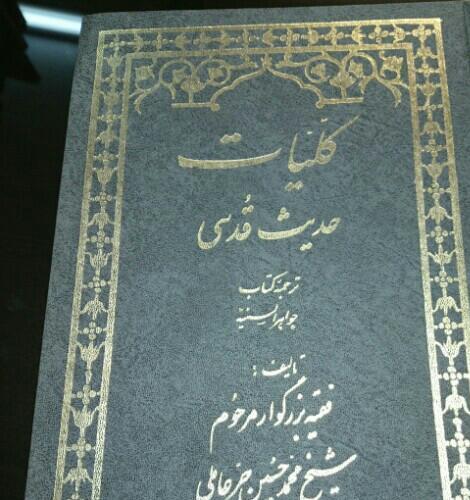 کلیّات
حدیث قُدسی
ترجمهٔ کتاب
جواهر السنیه
تألیف:
فقیه بزرگوار مرحوم
شیخ محمد حسین حر عاملی